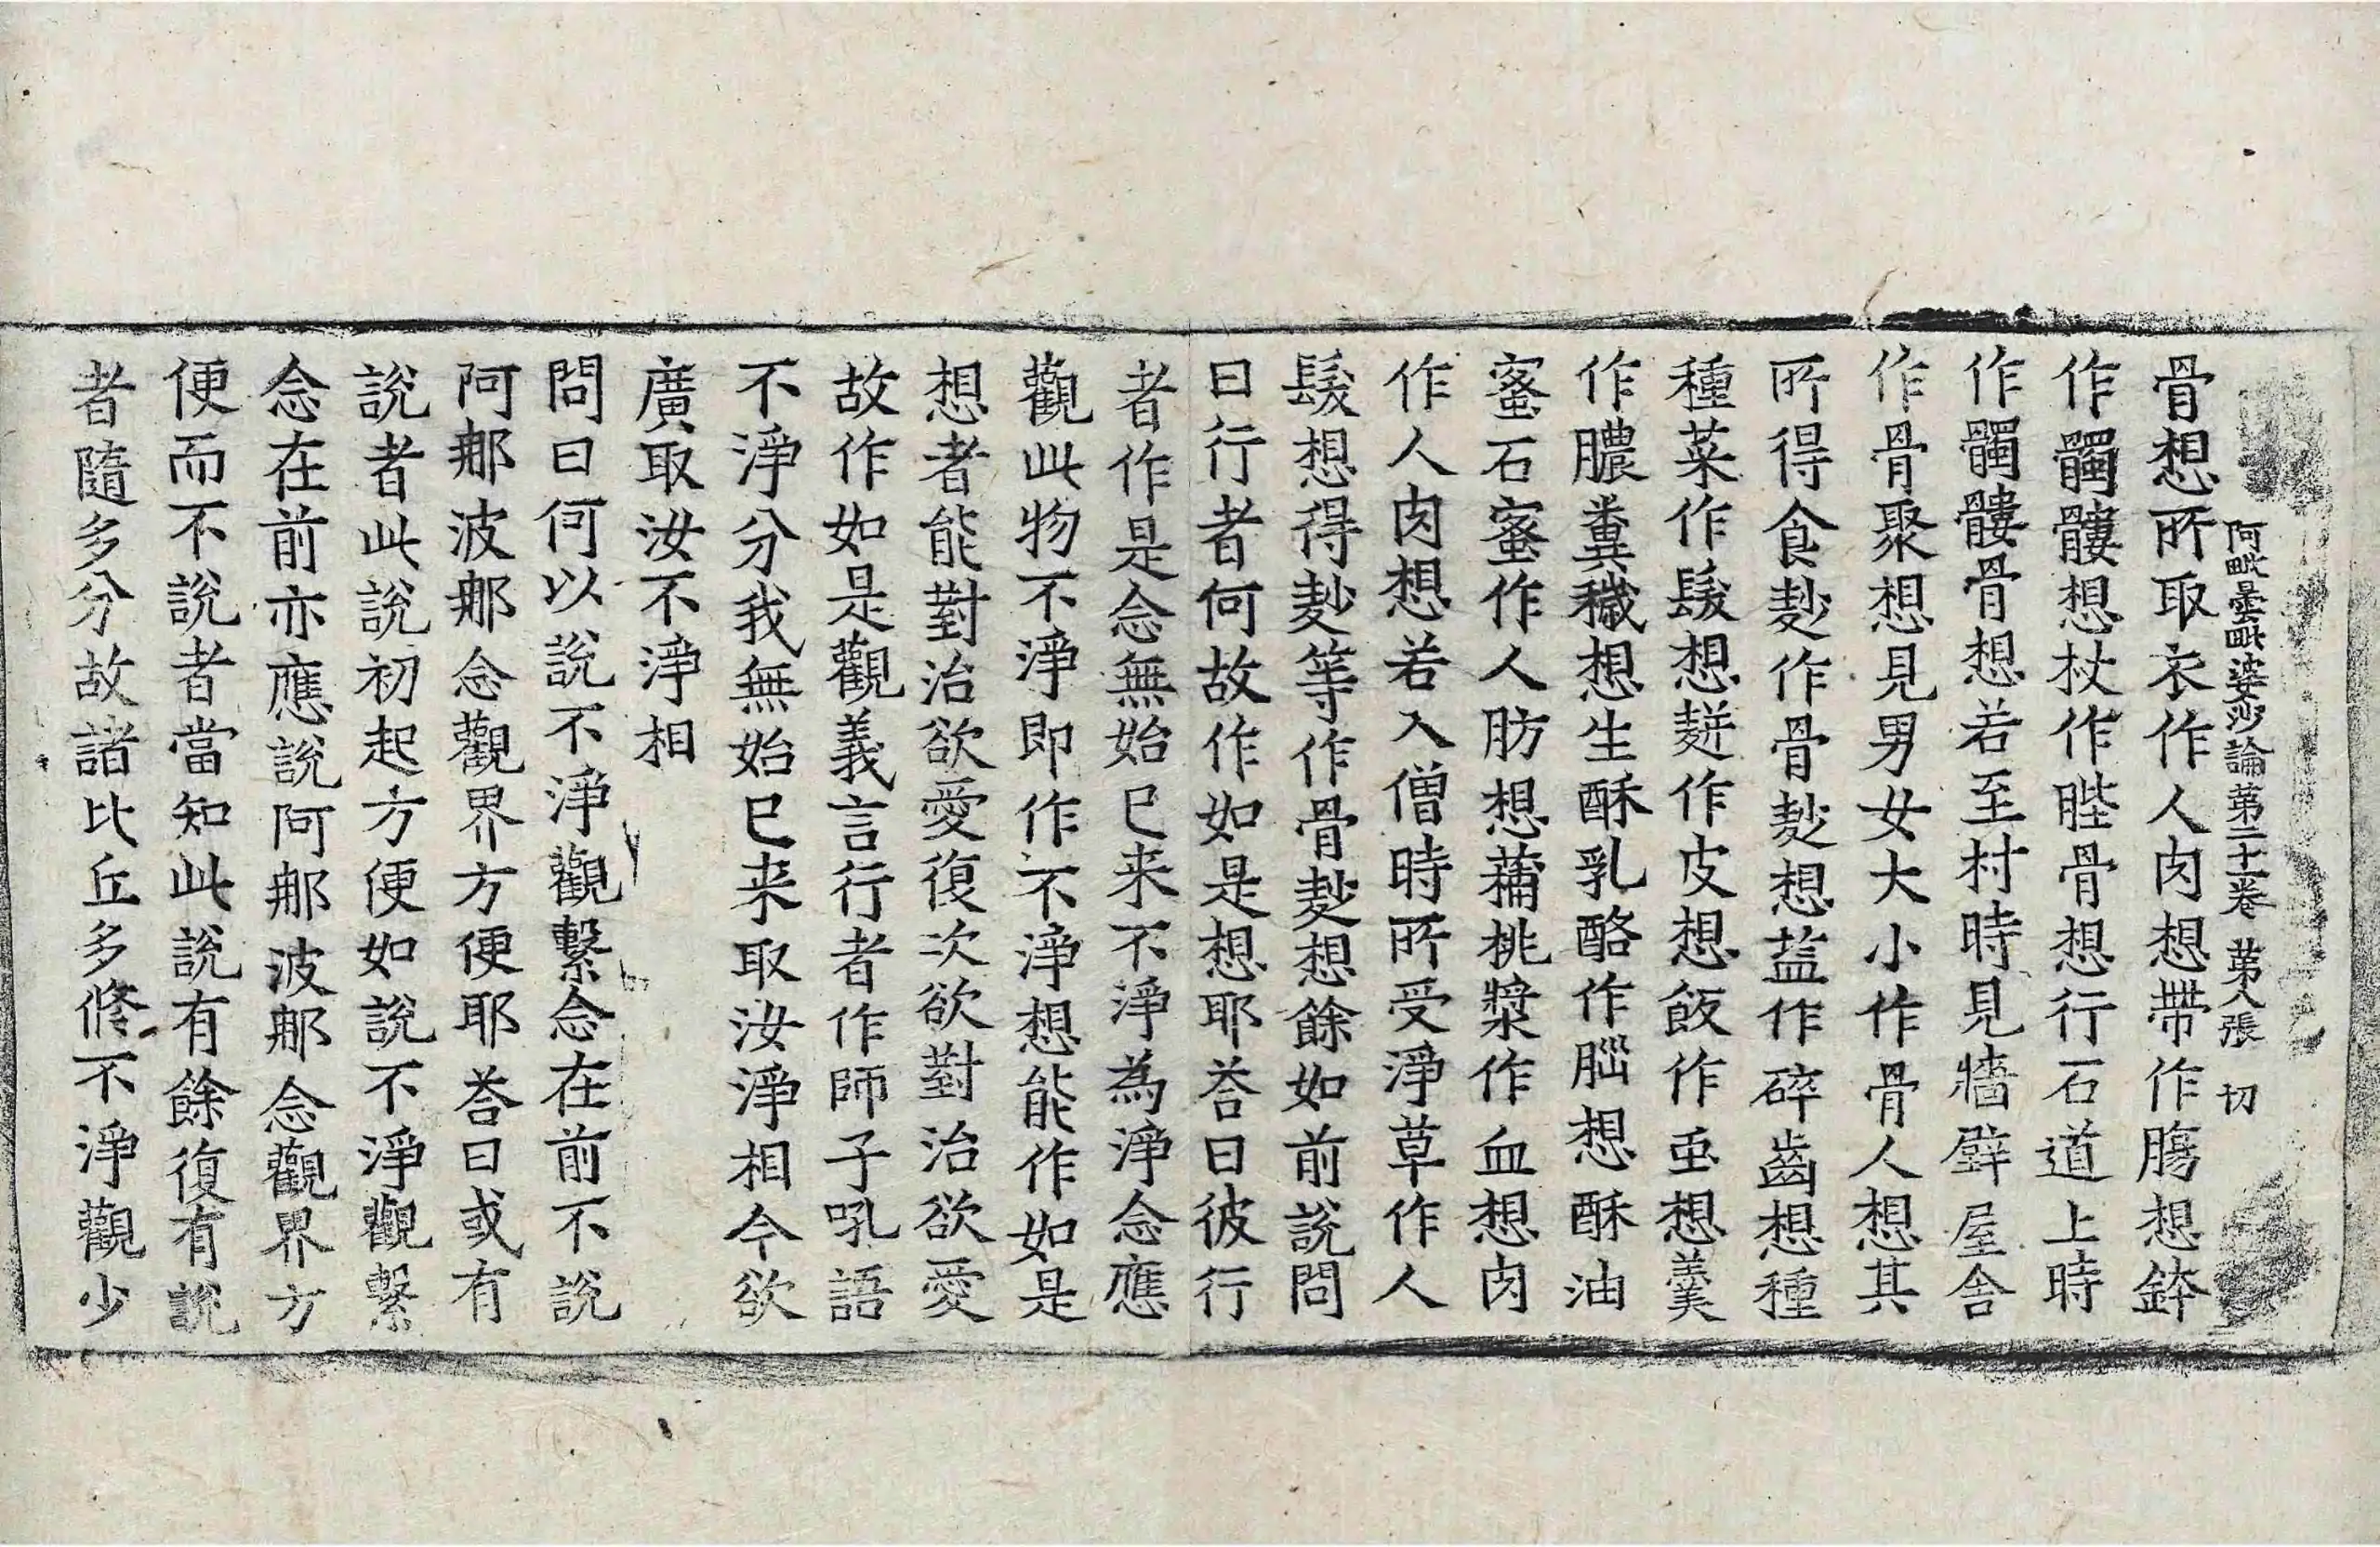 阿毗曇毗婆沙論第二十一卷 第八張 切
骨想所取衣作人肉想帶作膓想鉢
作髑髏想杖作䏶骨想行石道上時
作髑髏骨想若至村時見牆壁屋舍
作骨聚想見男女大小作骨人想其
所得食麨作骨麨想葢作碎齒想種
種菜作髮想䴵作皮想飯作䖝想羹
作膿糞穢想生酥乳酪作腦想酥油
蜜石蜜作人肪想蒱桃漿作血想肉
作人肉想若入僧時所受淨草作人
髮想得麨等作骨麨想餘如前說問
曰行者何故作如是想耶荅曰彼行
者作是念無始已来不淨為淨念應
觀此物不淨即作不淨想能作如是
想者能對治欲愛復次欲對治欲愛
故作如是觀義言行者作師子吼語
不淨分我無始已来取汝淨相今欲
廣取汝不淨相
問曰何以說不淨觀繫念在前不說
阿那波那念觀界方便耶荅曰或有
說者此說初起方便如說不淨觀繫
念在前亦應說阿那波那念觀界方
便而不說者當知此說有餘復有說
者隨多分故諸比丘多修不淨觀少